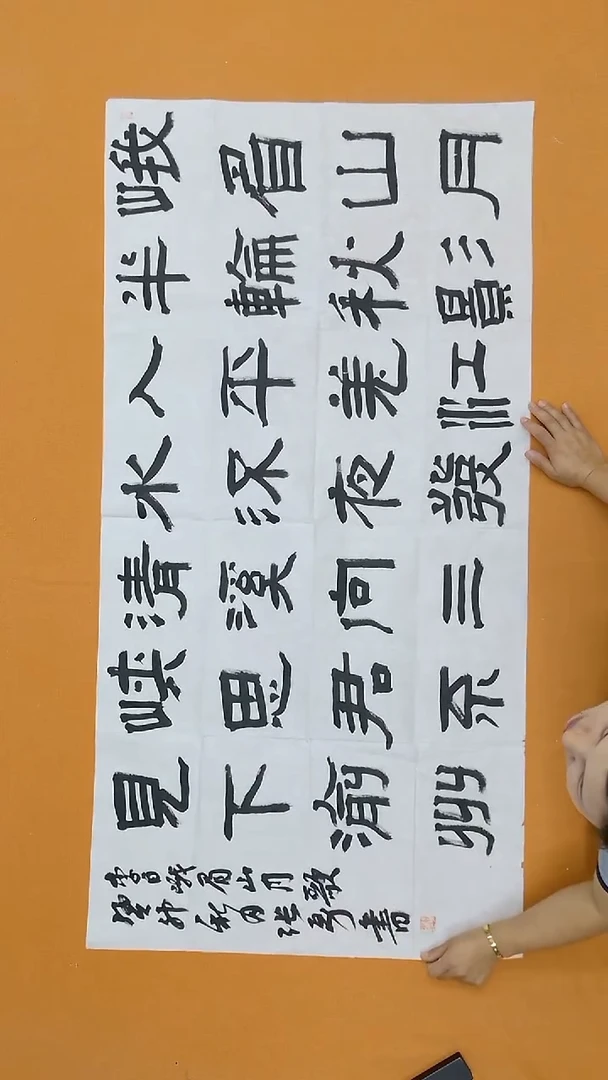 峨眉山月
半輪秋影
入平羌江
水流夜發
清溪向三
峽思君不
見下渝州
李白峨眉山月歌
秋月張書